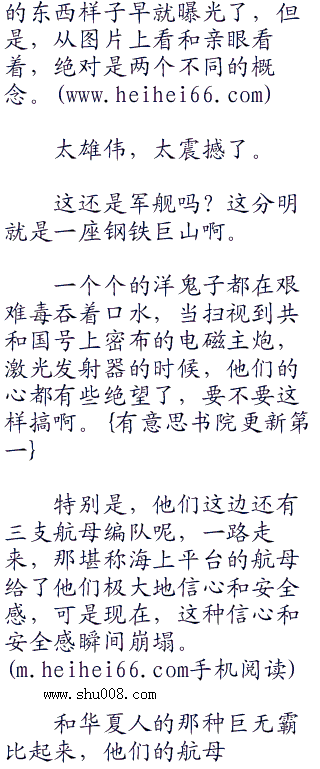 的东西样子早就曝光了，但
是，从图片上看和亲眼看
着，绝对是两个不同的概
念。(www.heihei66.com)
太雄伟，太震撼了。
这还是军舰吗？这分明
就是一座钢铁巨山啊。
一个个的洋鬼子都在艰
难毒吞着口水，当扫视到共
和国号上密布的电磁主炮，
激光发射器的时候，他们的
心都有些绝望了，要不要这
样搞啊。{有意思书院更新第
一}
特别是，他们这边还有
三支航母编队呢，一路走
来，那堪称海上平台的航母
给了他们极大地信心和安全
感，可是现在，这种信心和
安全感瞬间崩塌。
(m.heihei66.com手机阅读)
www.shu008.com
和华夏人的那种巨无霸
比起来，他们的航母